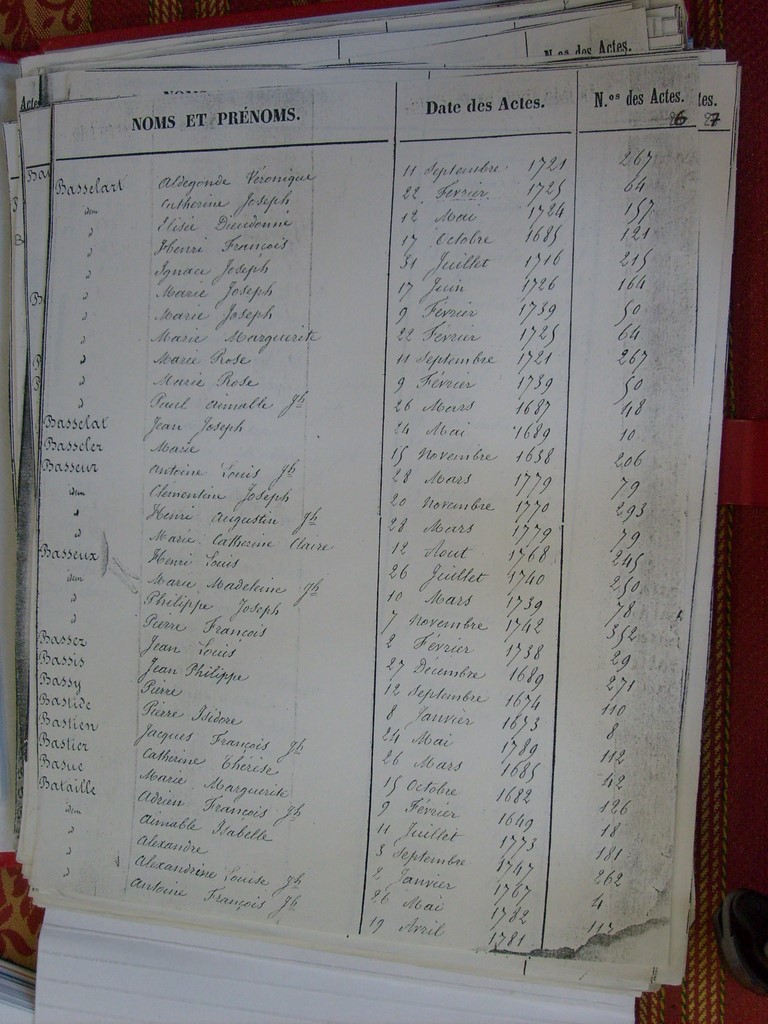 N.os des Actes.
Actes
NOMS ET PRÉNOMS. Date des Actes. N.os des Actes. tes.
26 27
Basselart Aldegonde Véronique 11 Septembre 1721 267
idem Catherine Joseph 22 Février 1725 64
" Elisée Dieudonné 12 Mai 1724 157
" Henri François 17 Octobre 1685 121
" Ignace Joseph 31 Juillet 1716 215
" Marie Joseph 17 Juin 1726 164
" Marie Joseph 9 Février 1739 50
" Marie Marguerite 22 Février 1725 64
" Marie Rose 11 Septembre 1721 267
" Marie Rose 9 Février 1739 50
" Paul Aimable Jh 26 Mars 1687 48
Basselat Jean Joseph 24 Mai 1689 10
Basseler Marie 15 Novembre 1638 206
Basseur Antoine Louis Jh 28 Mars 1779 79
idem Clémentine Joseph 20 Novembre 1770 293
" Henri Augustin Jh 28 Mars 1779 79
" Marie Catherine Claire 12 Aout 1768 245
Basseux Henri Louis 26 Juillet 1740 250
idem Marie Madeleine Jh 10 Mars 1739 78
" Philippe Joseph 7 Novembre 1742 352
" Pierre François 2 Février 1738 29
Bassez Jean Louis 27 Décembre 1689 271
Bassis Jean Philippe 12 Septembre 1674 110
Bassy Pierre 8 Janvier 1673 8
Bastide Pierre Isidore 24 Mai 1789 112
Bastien Jacques François Jh 26 Mars 1685 42
Bastier Catherine Thérèse 15 Octobre 1682 126
Basuc Marie Marguerite 9 Février 1649 18
Bataille Adrien François Jh 11 Juillet 1773 181
idem Aimable Isabelle 3 Septembre 1747 262
" Alexandre 2 Janvier 1767 4
" Alexandrine Louise Jh 26 Mai 1782 117
" Antoine François Jh 19 Avril 1781